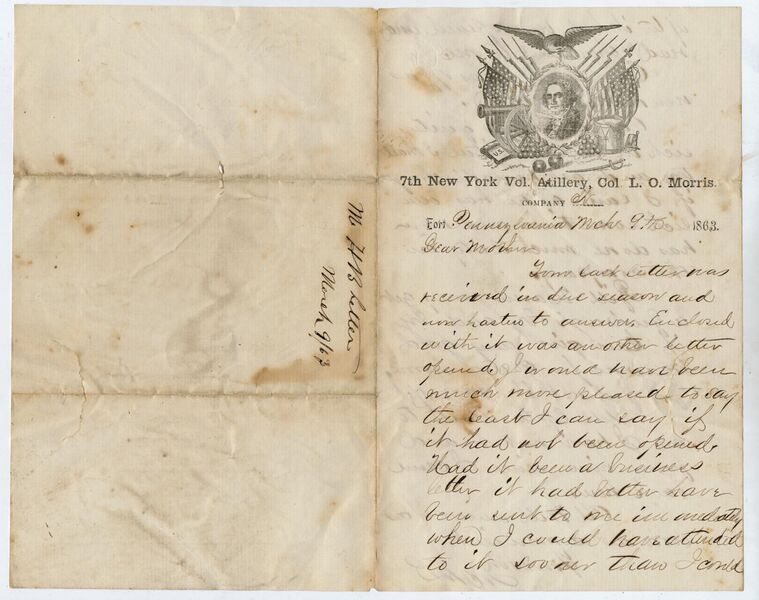 7th New York Vol. Artillery, Col. L. O. Morris.
COMPANY
Fort Pennsylvania Mch 9th 1863.
Dear Mother
Your last letter was
received in due season and
now hasten to answer. Enclosed
with it was another letter
opened, I would have been
much more pleased to say
the least I can say if
it had not been opened.
Had it been a business
letter it had better have
been sent to me immediately
when I could have attended
to it sooner than I could
Letter
March 9/63